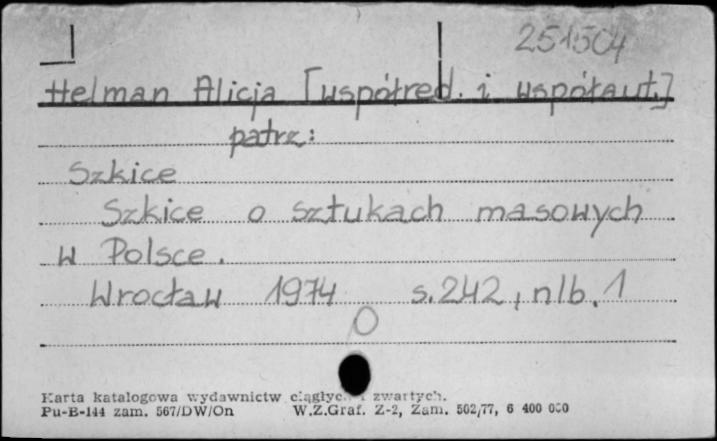 251504
Helman Alicja [współred. i współaut.]
patrz:
Szkice
Szkice o sztukach masowych
w Polsce.
Wrocław 1974 s. 242, nlb. 1
Karta katalogowa wydawnictw ciągłych i zwartych.
Pu-B-144 zam. 567/DW/On W.Z.Graf. Z-2, Zam. 502/77, 6 400 000